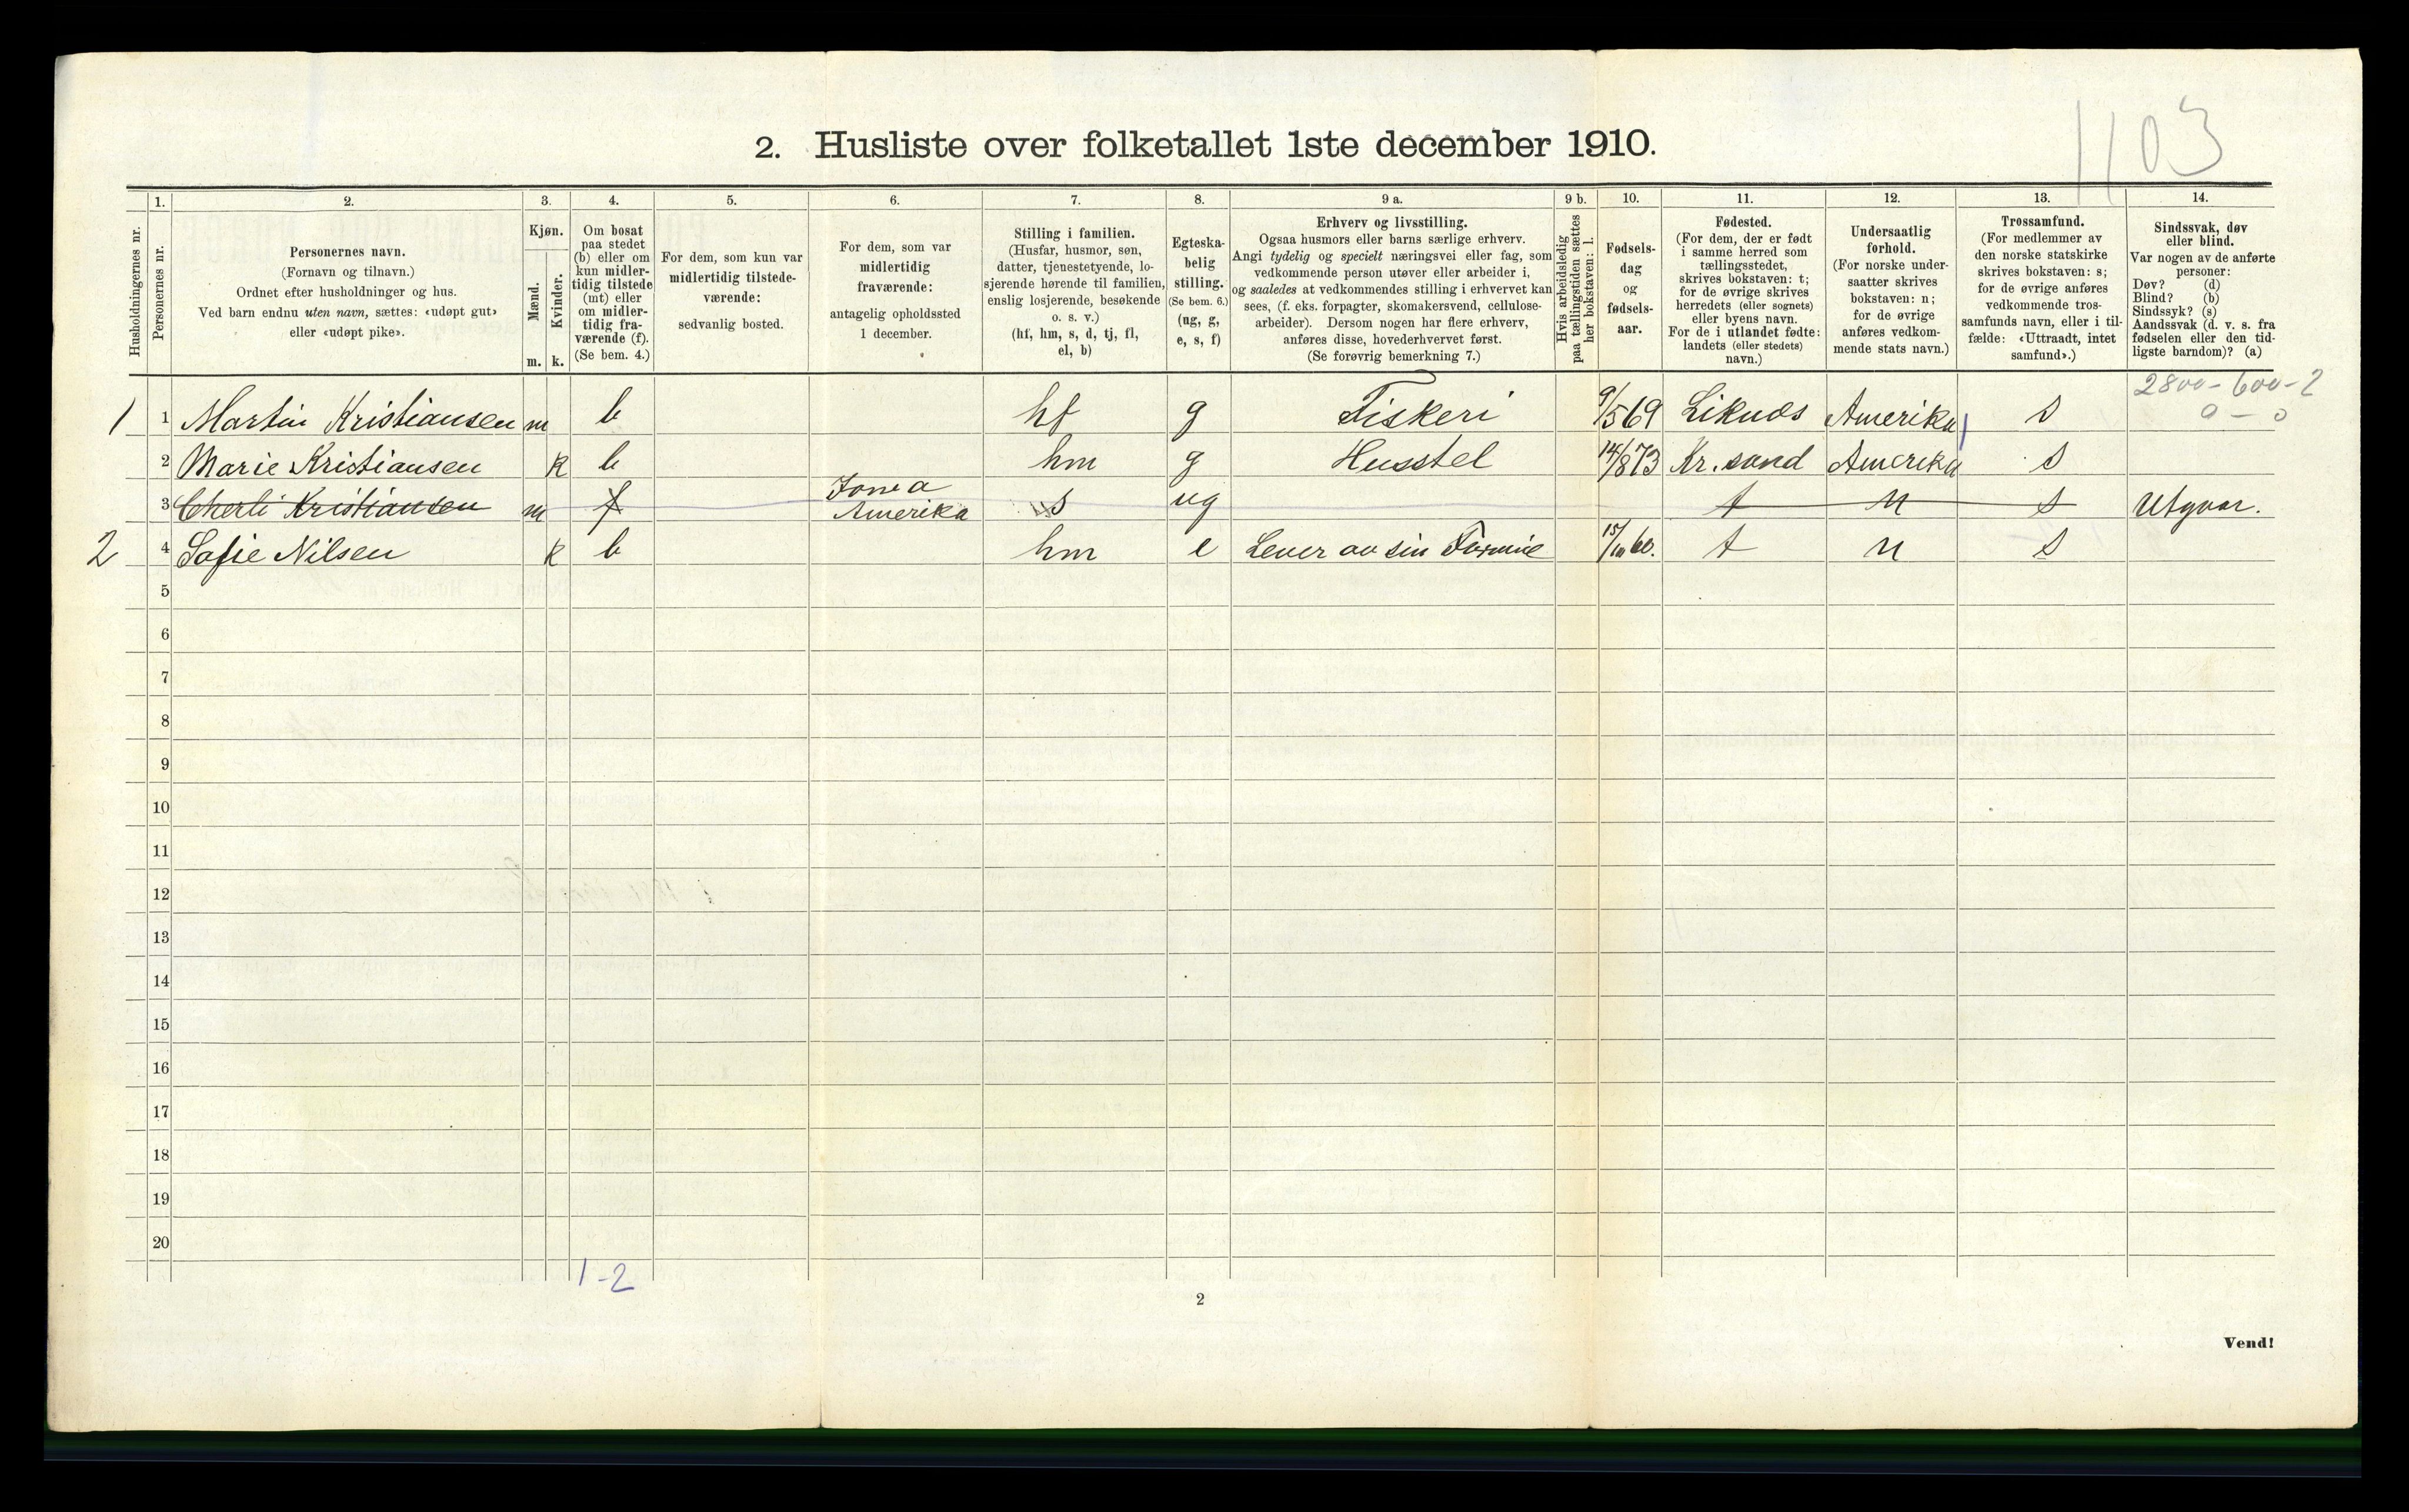 1103
2. Husliste over folketallet 1ste december 1910.
1. 2. 3. 4. 5. 6. 7. 8. 9 a. 9 b. 10. 11. 12. 13. 14.
Husholdningernes nr.
Personernes nr.
Personernes navn.
(Fornavn og tilnavn.)
Ordnet efter husholdninger og hus.
Ved barn endnu uten navn, sættes: «udøpt gut»
eller «udøpt pike».
Kjøn.
Mænd.
Kvinder.
m. k.
Om bosat
paa stedet
(b) eller om
kun midler-
tidig tilstede
(mt) eller
om midler-
tidig fra-
værende (f).
(Se bem. 4.)
For dem, som kun var
midlertidig tilstede-
værende:
sedvanlig bosted.
For dem, som var
midlertidig
fraværende:
antagelig opholdssted
1 december.
Stilling i familien.
(Husfar, husmor, søn,
datter, tjenestetyende, lo-
sjerende hørende til familien,
enslig losjerende, besøkende
o. s. v.)
(hf, hm, s, d, tj, fl,
el, b)
Egteska-
belig
stilling.
(Se bem. 6.)
(ug, g,
e, s, f)
Erhverv og livsstilling.
Ogsaa husmors eller barns særlige erhverv.
Angi tydelig og specielt næringsvei eller fag, som
vedkommende person utøver eller arbeider i,
og saaledes at vedkommendes stilling i erhvervet kan
sees, (f. eks. forpagter, skomakersvend, cellulose-
arbeider). Dersom nogen har flere erhverv,
anføres disse, hovederhvervet først.
(Se forøvrig bemerkning 7.)
Hvis arbeidsledig
paa tællingstiden sættes
her bokstaven: l.
Fødsels-
dag
og
fødsels-
aar.
Fødested.
(For dem, der er født
i samme herred som
tællingsstedet,
skrives bokstaven: t;
for de øvrige skrives
herredets (eller sognets)
eller byens navn.
For de i utlandet fødte:
landets (eller stedets)
navn.)
Undersaatlig
forhold.
(For norske under-
saatter skrives
bokstaven: n;
for de øvrige
anføres vedkom-
mende stats navn.)
Trossamfund.
(For medlemmer av
den norske statskirke
skrives bokstaven: s;
for de øvrige anføres
vedkommende tros-
samfunds navn, eller i til-
fælde: «Uttraadt, intet
samfund».)
Sindssvak, døv
eller blind.
Var nogen av de anførte
personer:
Døv? (d)
Blind? (b)
Sindssyk? (s)
Aandssvak (d. v. s. fra
fødselen eller den tid-
ligste barndom)? (a)
2800 - 600 - 2
0 - 0
1 1 Martin Kristiansen m b hf g Fiskeri 9/5 69 Liknæs Amerika s
2 Marie Kristiansen k b hm g Husstel 14/8 73 Kr. sand Amerika s
3 Cherli Kristiansen m f Iowa Amerika s ug t n s Utgaar.
2 4 Sofie Nilsen k b hm e Lever av sin Formue 15/10 60. t n s
5
6
7
8
9
10
11
12
13
14
15
16
17
18
19
20
1-2
2
Vend!